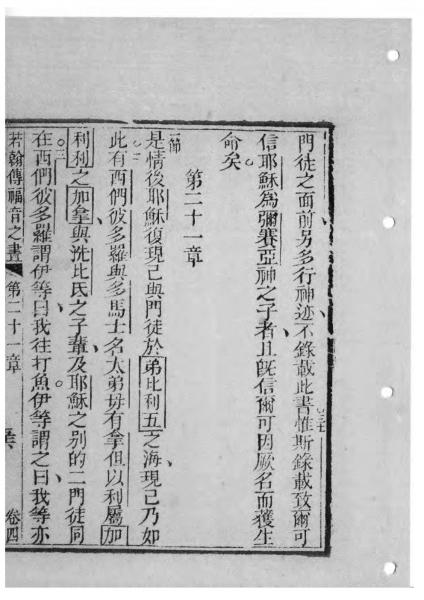 門徒之面前另多行神迹不錄載此書惟斯錄載致爾可
三七
信耶穌為彌賽亞神之子者且旣信爾可因厥名而獲生
命矣
第二十一章
一節
是情後耶穌復現己與門徒於弟比利五之海現己乃如
此有西們彼多羅與多馬士名大弟母有拿但以利屬加
二
利利之加拿與洗比氏之子輩及耶穌之别的二門徒同
三
在西們彼多羅謂伊等曰我往打魚伊等謂之曰我等亦
若翰傳福音之書 第二十一章 卷四